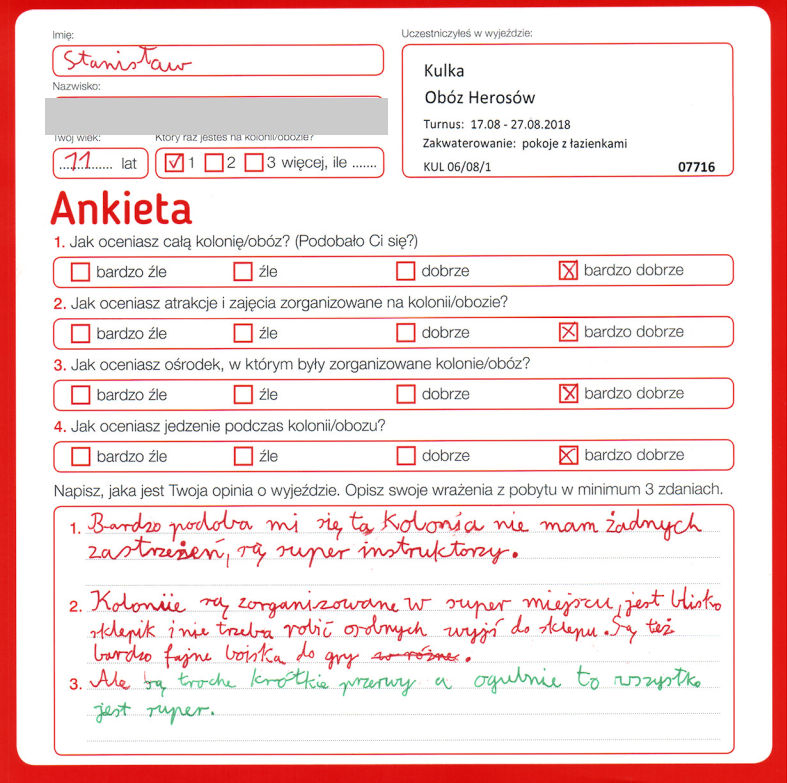 Imię:
Stanisław
Nazwisko:
Twój wiek:
11 lat
Który raz jesteś na kolonii/obozie?
1 2 3 więcej, ile .......
Uczestniczyłeś w wyjeździe:
Kulka
Obóz Herosów
Turnus: 17.08 - 27.08.2018
Zakwaterowanie: pokoje z łazienkami
KUL 06/08/1 07716
Ankieta
1. Jak oceniasz całą kolonię/obóz? (Podobało Ci się?)
bardzo źle źle dobrze bardzo dobrze
2. Jak oceniasz atrakcje i zajęcia zorganizowane na kolonii/obozie?
bardzo źle źle dobrze bardzo dobrze
3. Jak oceniasz ośrodek, w którym były zorganizowane kolonie/obóz?
bardzo źle źle dobrze bardzo dobrze
4. Jak oceniasz jedzenie podczas kolonii/obozu?
bardzo źle źle dobrze bardzo dobrze
Napisz, jaka jest Twoja opinia o wyjeździe. Opisz swoje wrażenia z pobytu w minimum 3 zdaniach.
1. Bardzo podoba mi się ta Kolonia nie mam żadnych
zastrzeżeń, są super instruktorzy.
2. Koloniie są zorganizowane w super miejscu, jest blisko
sklepik i nie trzeba robić osobnych wyjść do sklepu. Są też
bardzo fajne boiska do gry w różne.
3. Ale są troche krótkie przerwy a ogulnie to wszystko
jest super.